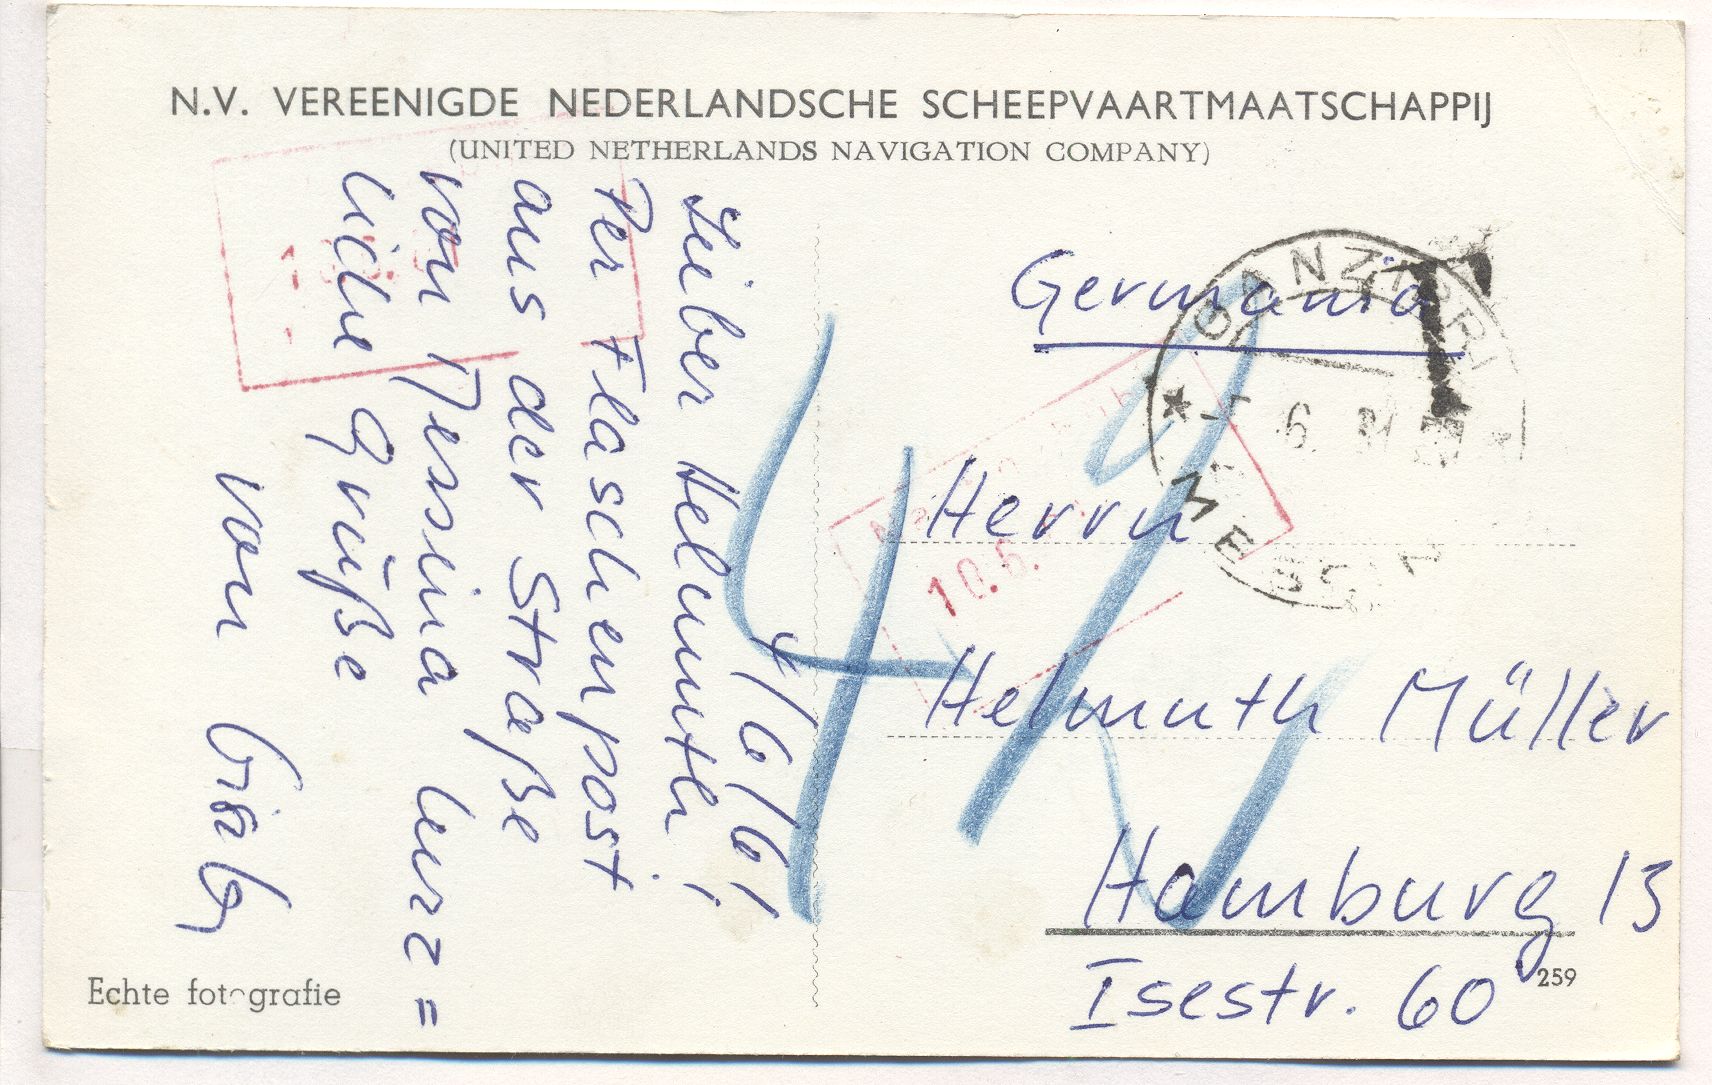 N.V. VEREENIGDE NEDERLANDSCHE SCHEEPVAARTMAATSCHAPPIJ
(UNITED NETHERLANDS NAVIGATION COMPANY)
4/6/61
Lieber Helmuth!
Per Flaschenpost
aus der Straße
von Messina herz=
liche Grüße
von
Germania
T
GANZIRRI
6
MESS
10.6.
42
Herrn
Helmuth Müller
Hamburg 13
Isestr. 60
Echte fotografie
259